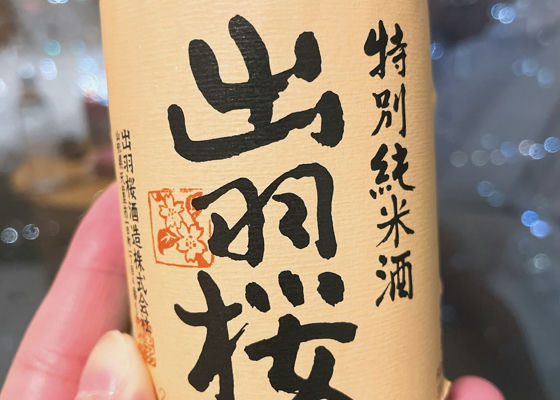 特別純米酒
出羽桜
出羽桜酒造株式会社